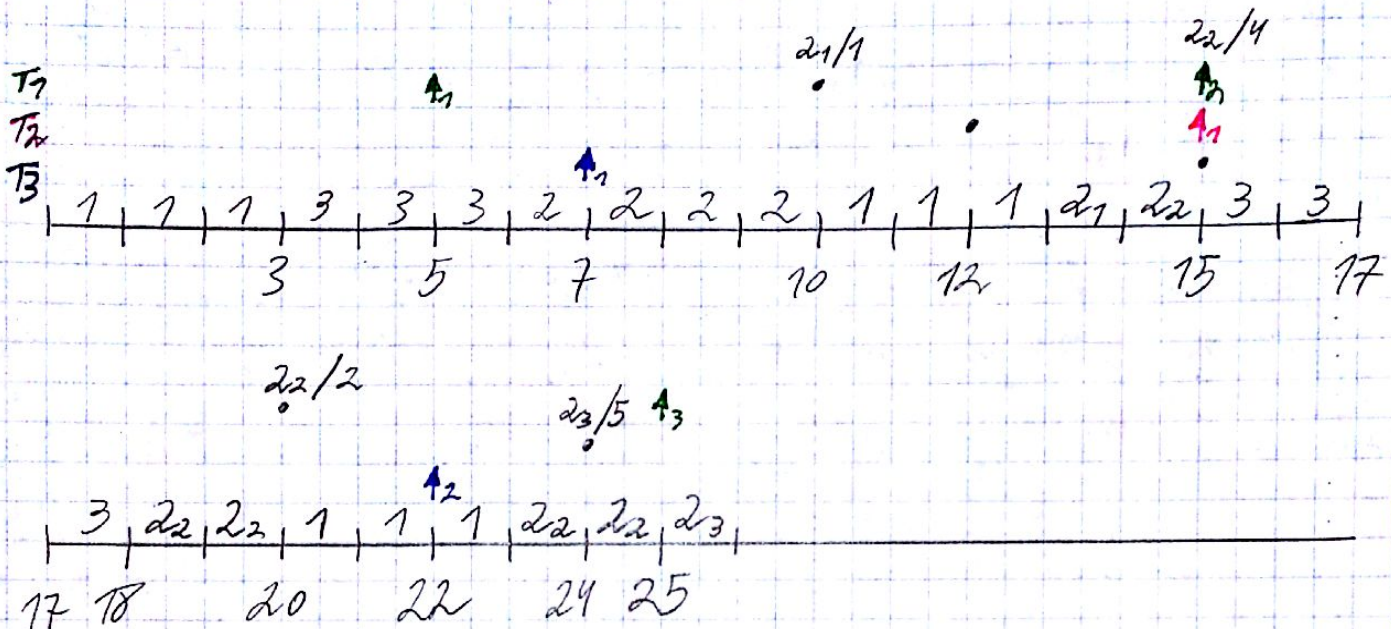 2₁/1 2₂/4
T1 ↑₁ ↑₂
T2 ↑₁
T3 ↑₁
1 1 1 3 3 3 2 2 2 2 1 1 1 2₁ 2₂ 3 3
3 5 7 10 12 15 17
2₂/2
2₃/5 ↑₃
↑₂
3 2₂ 2₂ 1 1 1 2₂ 2₂ 2₃
17 18 20 22 24 25